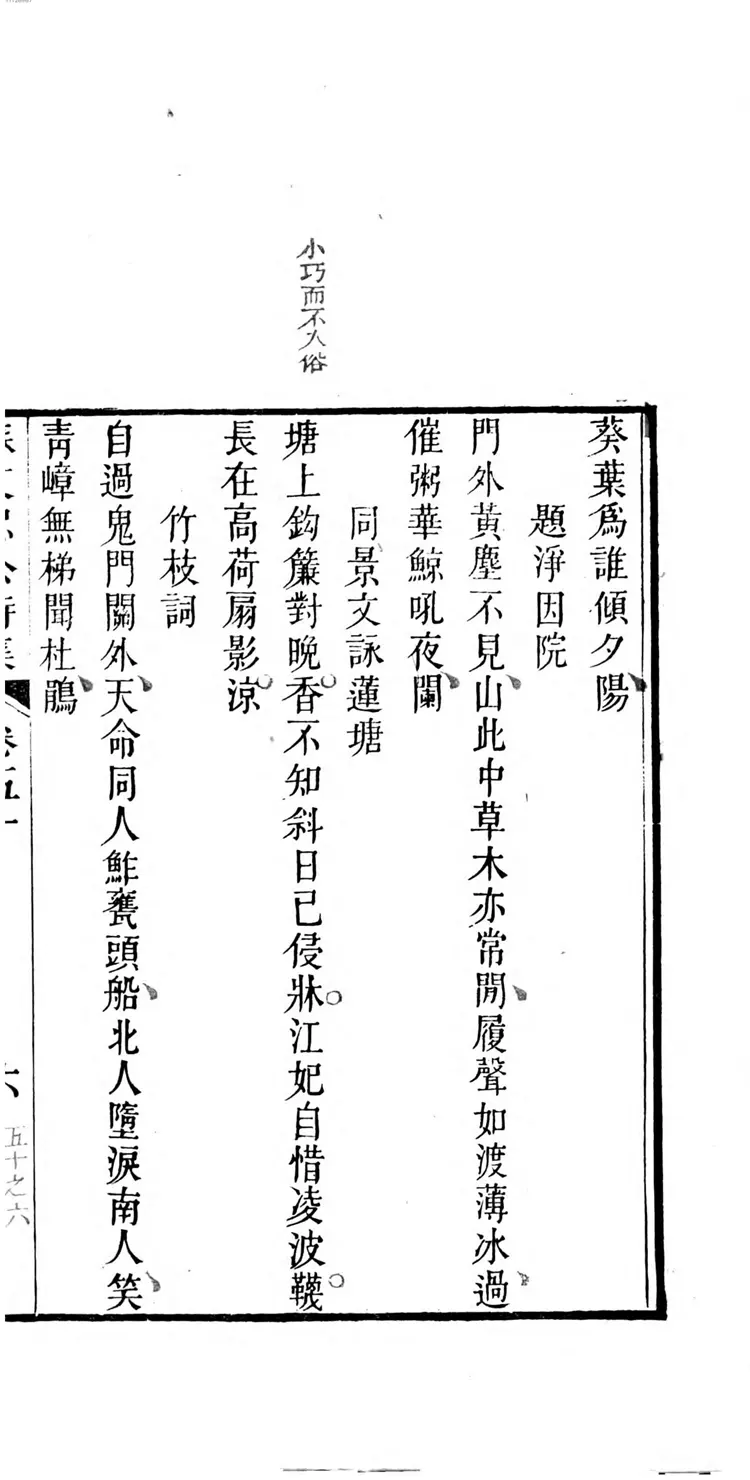 小巧而不入俗
葵葉爲誰傾夕陽
題淨因院
門外黃塵不見山此中草木亦常閒履聲如渡薄冰過
催粥華鯨吼夜闌
同景文詠蓮塘
塘上鈎簾對晩香不知斜日已侵牀江妃自惜凌波韈
長在高荷扇影凉
竹枝詞
自過鬼門關外天命同人鮓甕頭船北人墮淚南人笑
靑嶂無梯聞杜鵑
卷五十
六
五十之六